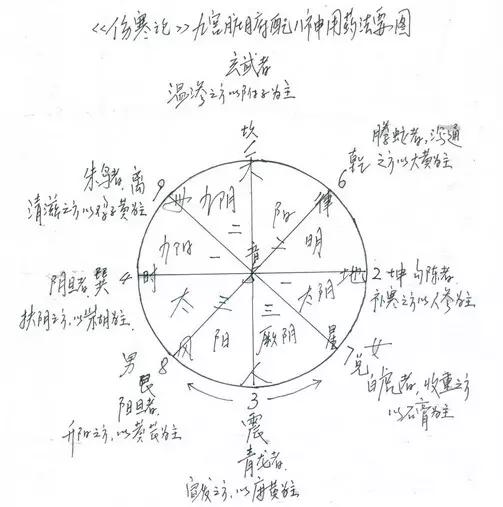 《伤寒论》九宫脏腑配八神用药法要图
玄武者
温渗之方以附子为主
坎
天
螣蛇者，沟通
乾 之方以大黄为主
6
律
朱雀者 离
清滋之方以鸡子黄为主
9
少阴
阳明
二
二
音
少阳
一
一
太阴
阴旦者 巽 4 时
扶阴之方，以柴胡为主
地 2 坤 勾陈者
补寒之方以人参为主
太阳
三
三
厥阴
风
星
人
男
艮 8
阳旦者
升阳之方，以黄芪为主
7 兑 女
白虎者，收重之方
以石膏为主
3
震
青龙者
宣发之方，以麻黄为主